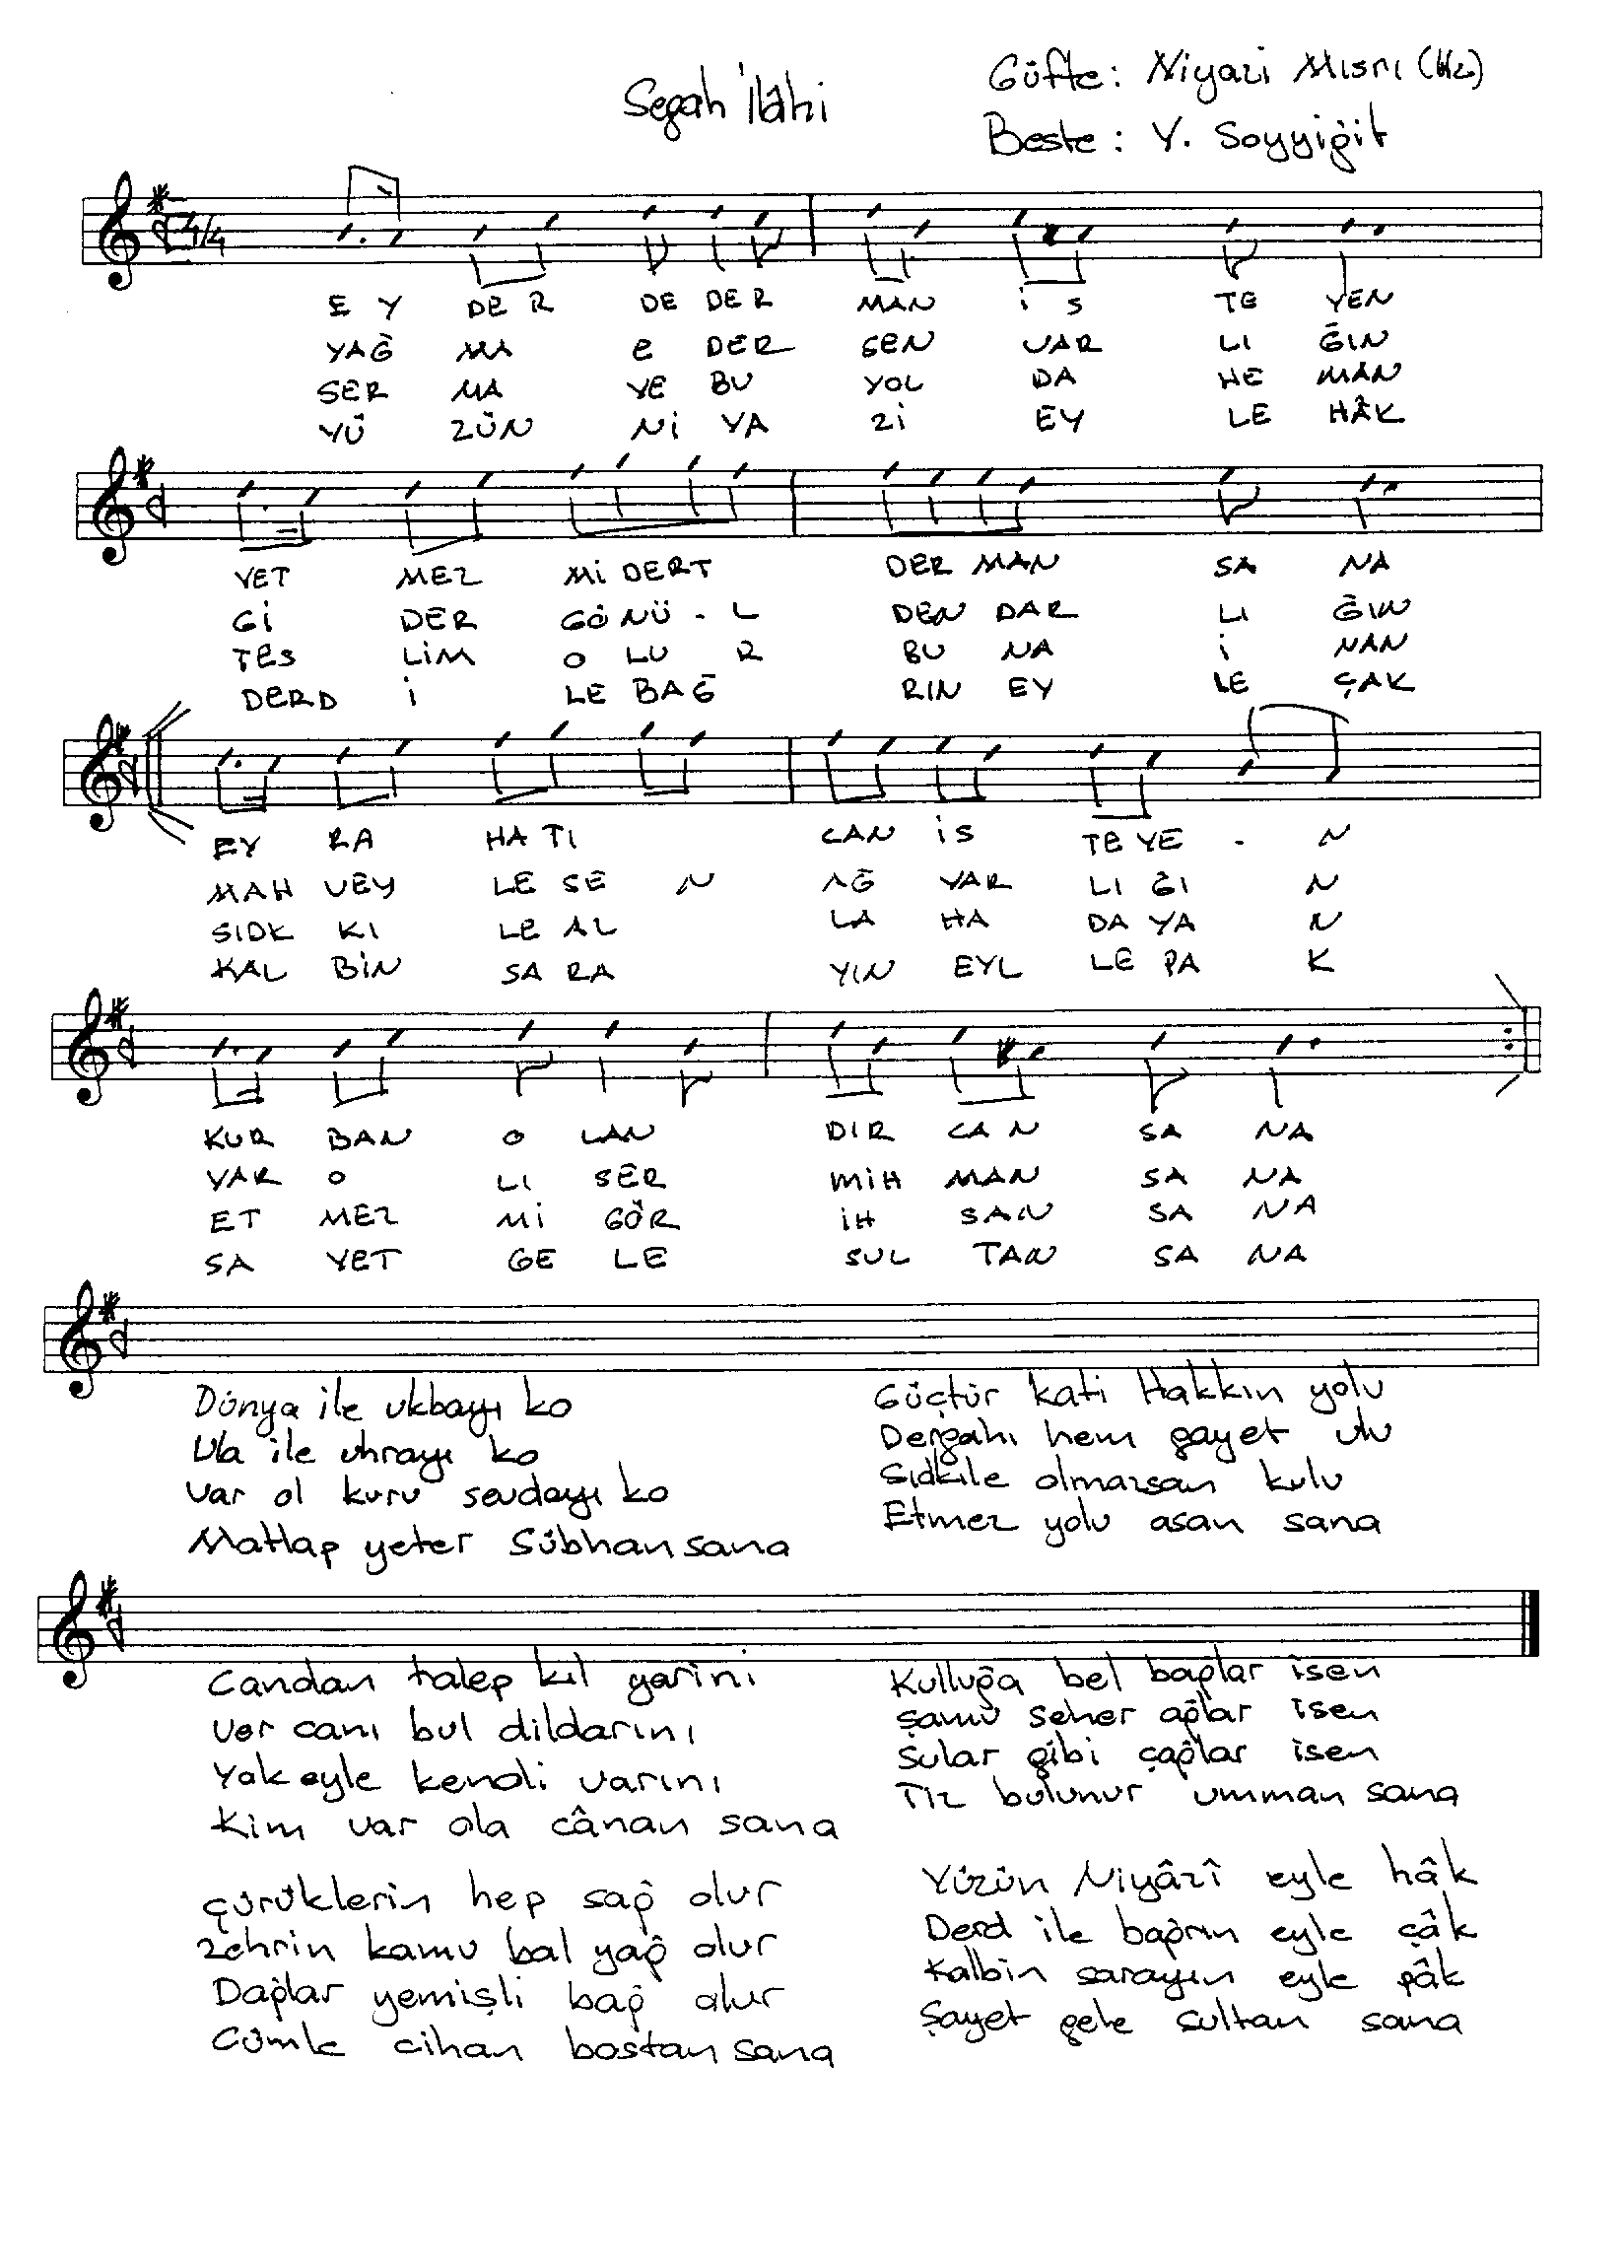 Segah İlâhi
Güfte: Niyazi Mısrı (Hz)
Beste: Y. Soyyiğit
4/4
EY DER DE DER MAN İS TE YEN
YAĞ MA E DER SEN VAR LI ĞIN
SER MA YE BU YOL DA HE MAN
YÜ ZÜN Nİ YA Zİ EY LE HÂK
YET MEZ Mİ DERT DER MAN SA NA
Gİ DER GÖNÜ - L DEN DAR LI ĞIN
TES LİM O LU R BU NA İ NAN
DERD İ LE BAĞ RIN EY LE ÇAK
EY RA HA TI CAN İS TE YE - N
MAH VEY LE SE N AĞ YAR LI ĞI N
SIDK KI LE AL LA HA DA YA N
KAL BİN SA RA YIN EYL LE PA K
KUR BAN O LAN DIR CA N SA NA
YAR O LI SER MİH MAN SA NA
ET MEZ Mİ GÖR İH SAN SA NA
SA YET GE LE SUL TAN SA NA
Dünya ile ukbayı ko
Ula ile uhrayı ko
Var ol kuru sevdayı ko
Matlap yeter Sübhan sana
Güçtür kati Hakkın yolu
Dergahı hem gayet ulu
Sıdkile olmazsan kulu
Etmez yolu asan sana
Candan talep kıl yarini
Ver canı bul dildarını
Yok eyle kendi varını
Kim var ola cânan sana
Kulluğa bel bağlar isen
şamu seher ağlar isen
Sular gibi çağlar isen
Tiz bulunur umman sana
çürüklerin hep sağ olur
Zehrin kamu bal yağ olur
Dağlar yemişli bağ olur
Cümle cihan bostan sana
Yüzün Niyâzî eyle hâk
Derd ile bağrın eyle çâk
Kalbin sarayın eyle pâk
Şayet gele sultan sana